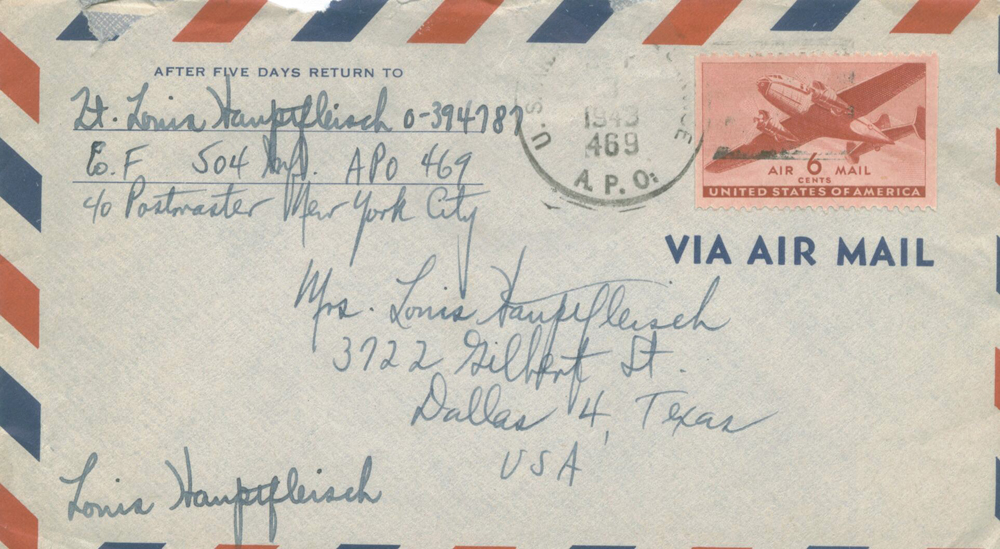 AFTER FIVE DAYS RETURN TO
Lt. Louis Hauptfleisch 0-394787
Co. F 504 Inf. APO 469
c/o Postmaster New York City
U.S.
1943
469
A.P.O.
AIR 6 MAIL
CENTS
UNITED STATES OF AMERICA
VIA AIR MAIL
Mrs. Louis Hauptfleisch
3722 Gilbert St.
Dallas 4, Texas
USA
Louis Hauptfleisch